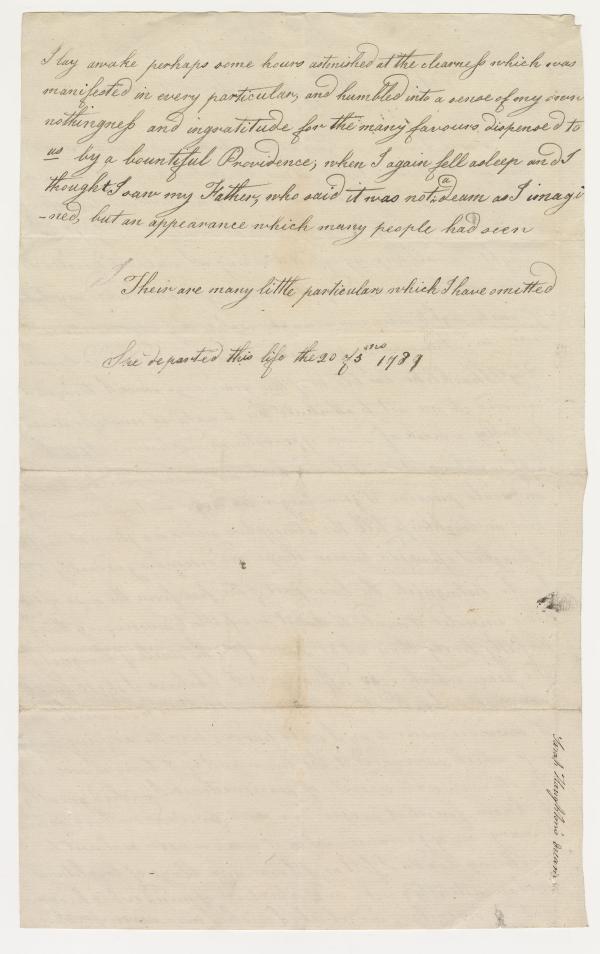 I lay awake perhaps some hours astinished at the clearness which was
manifested in every particular, and humbled into a sense of my own
nothingness and ingratitude for the many favours dispensed to
us by a bountiful Providence, when I again fell asleep and I
thought I saw my Father, who said it was not a deam as I imagi
-ned, but an appearance which many people had seen
Their are many little particulars which I have omitted
She departed this life the 20 of 5 mo 1789
Sarah Haughton's